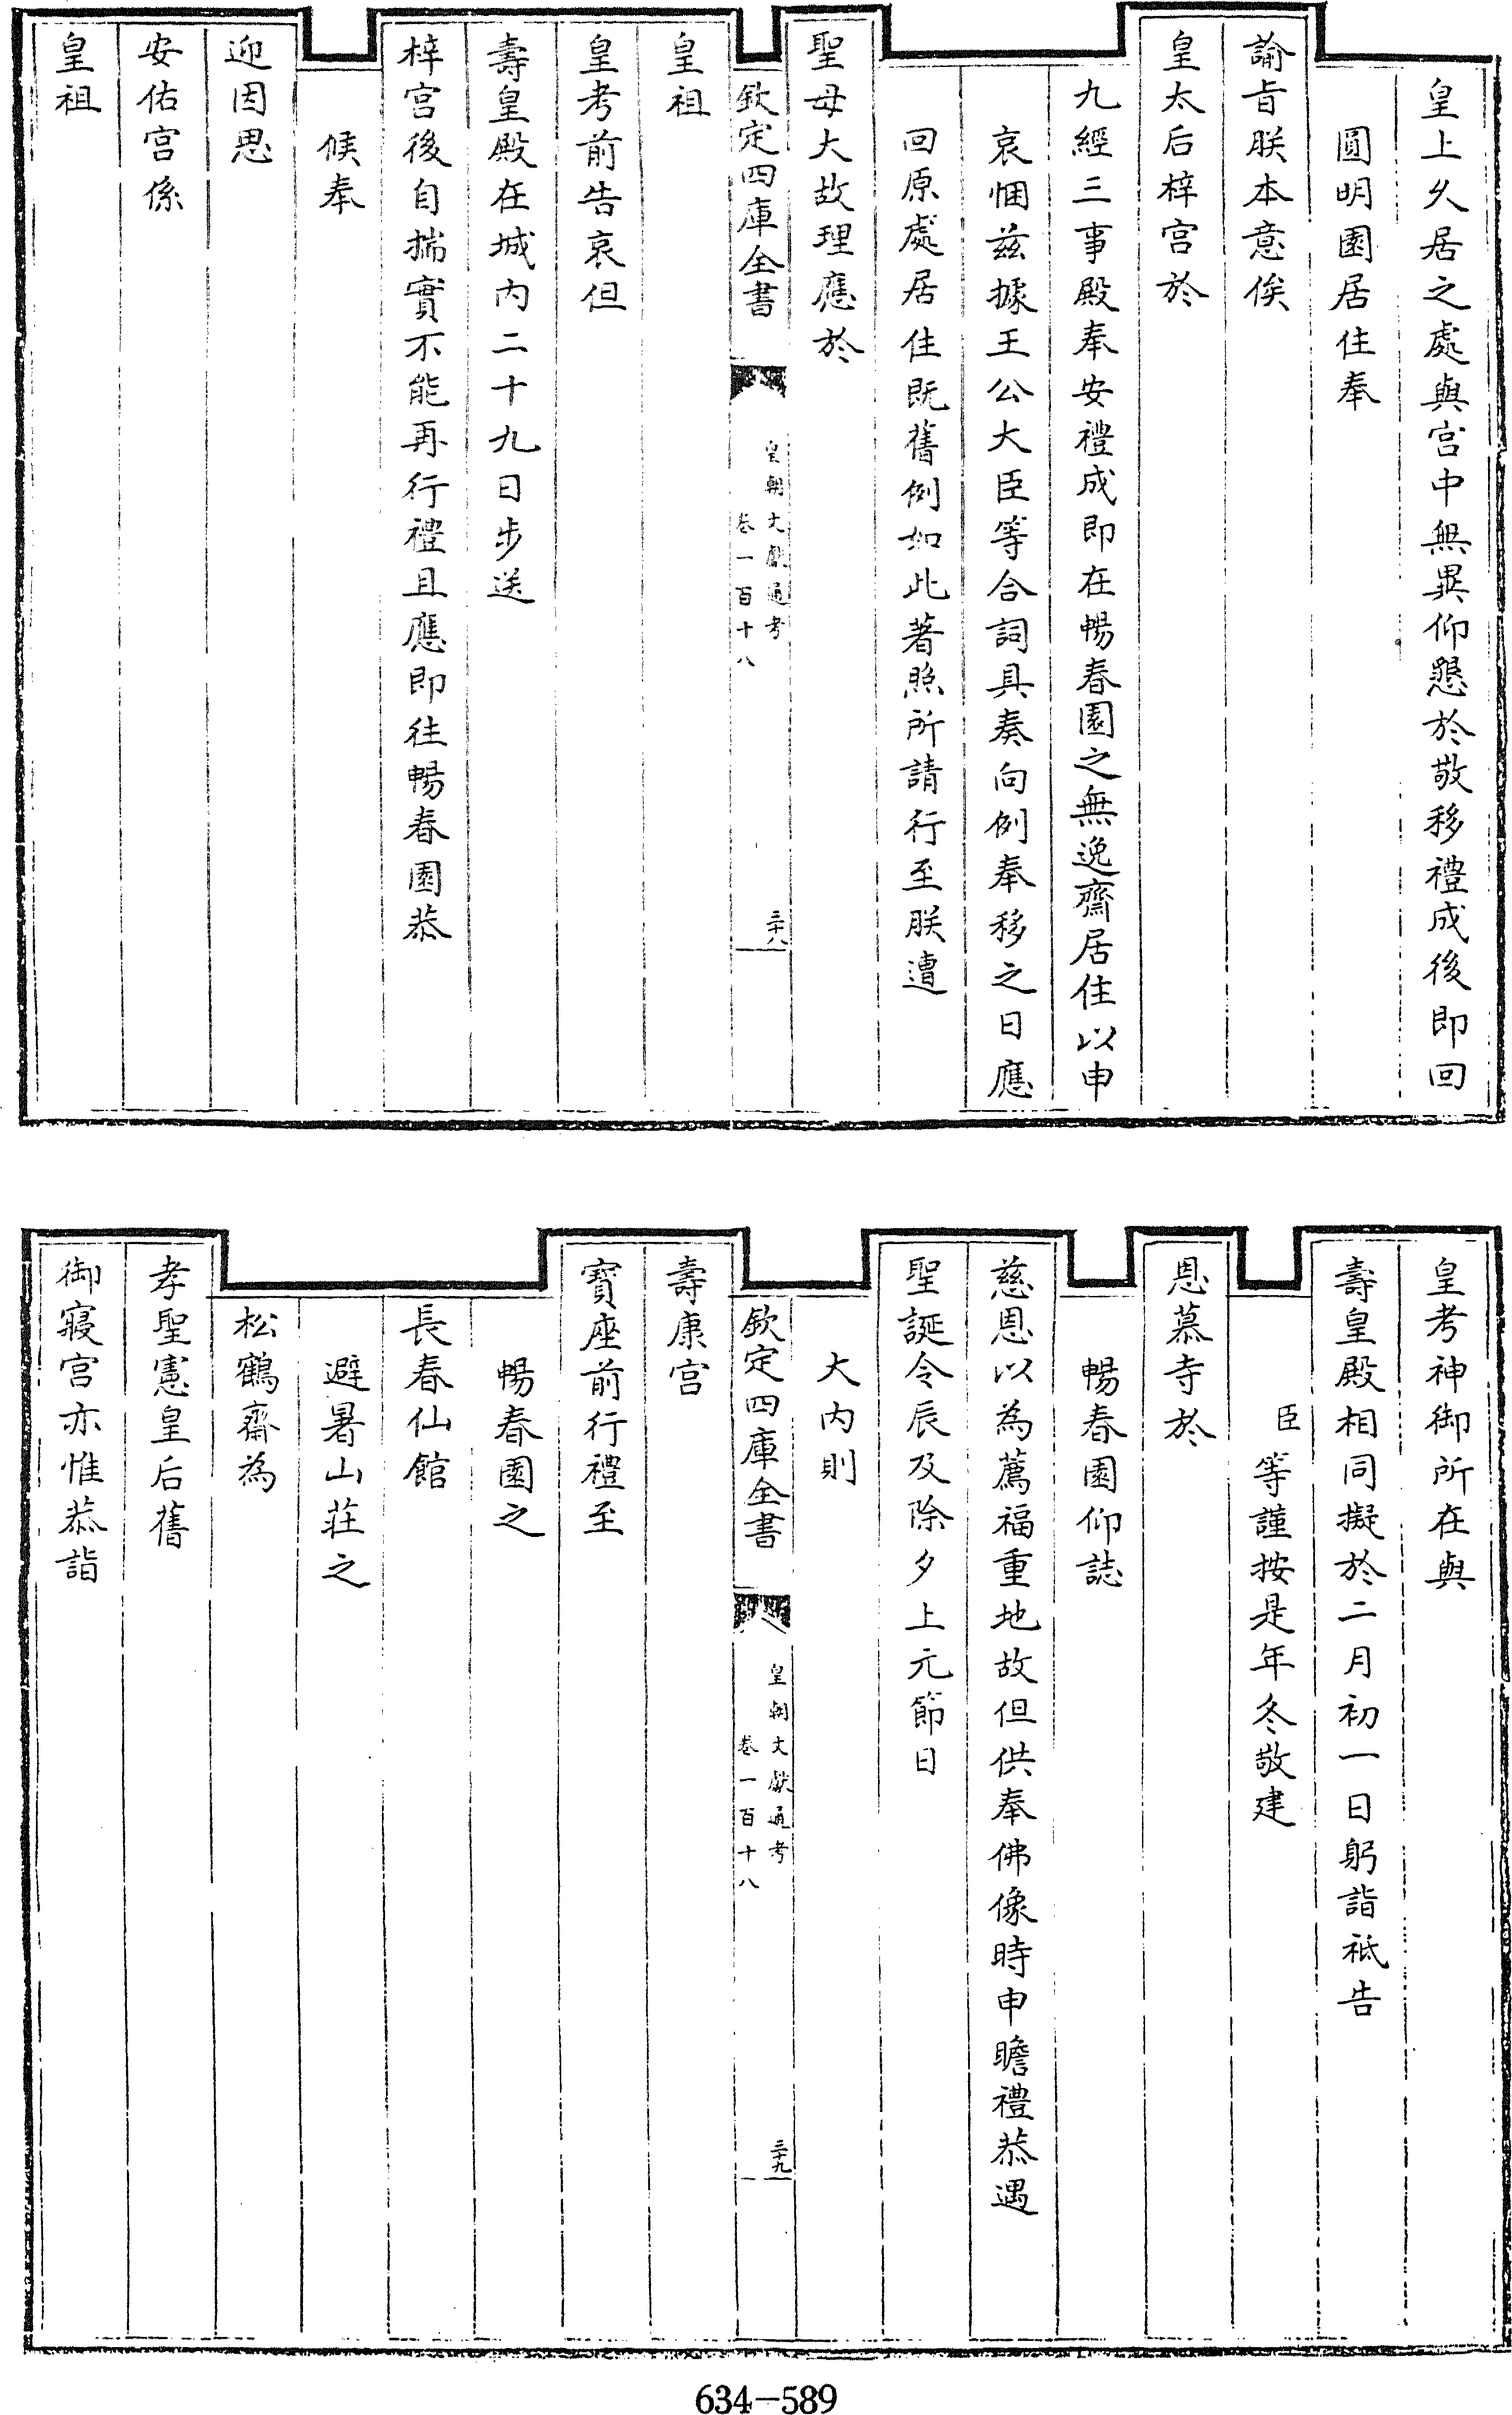 皇上久居之處與宮中無異仰懇於敬移禮成後即回
圓明園居住奉
諭旨朕本意俟
皇太后梓宮於
九經三事殿奉安禮成即在暢春園之無逸齋居住以申
哀悃茲據王公大臣等合詞具奏向例奉移之日應
回原處居住既舊例如此著照所請行至朕遭
聖母大故理應於
欽定四庫全書
皇朝文獻通考
卷一百十八
三十八
皇祖
皇考前告哀但
壽皇殿在城內二十九日步送
梓宮後自揣實不能再行禮且應即往暢春園恭
候奉
迎因思
安佑宮係
皇祖
皇考神御所在與
壽皇殿相同擬於二月初一日躬詣祗告
臣等謹按是年冬敬建
恩慕寺於
暢春園仰誌
慈恩以為薦福重地故但供奉佛像時申瞻禮恭遇
聖誕令辰及除夕上元節日
大內則
欽定四庫全書
皇朝文獻通考
卷一百十八
三十九
壽康宮
寶座前行禮至
暢春園之
長春仙館
避暑山莊之
松鶴齋為
孝聖憲皇后舊
御寢宮亦惟恭詣
634-589